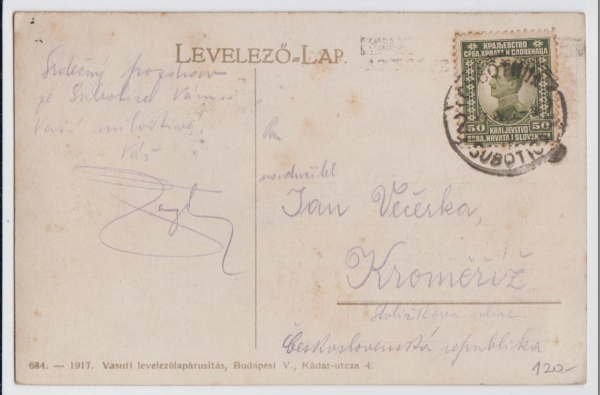 LEVELEZŐ-LAP.
Srdečný pozdrav
ze Subotice Vám i
Vaší milostivé
Váš
КРАЉЕВСТВО
СРБА, ХРВАТА И СЛОВЕНАЦА
50 KRALJEVSTVO 50
SRBA, HRVATA I SLOVENACA
SUBOTICA
Pan
Jan Večerka,
Kroměříž
Československá republika
684. — 1917. Vasuti levelezőlapárusitás, Budapest V., Kádár-utcza 4.
120-